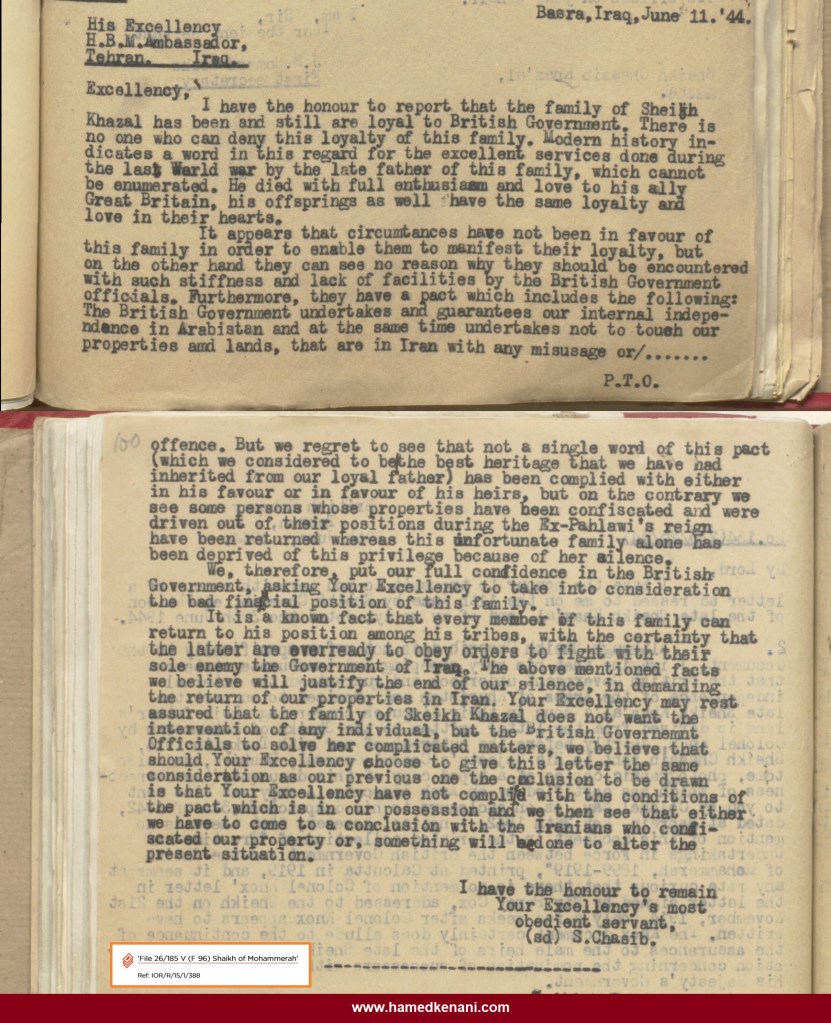 Basra,Iraq,June 11.'44.
His Excellency
H.B.M.Ambassador,
Tehran. Iraq.
Excellency,
I have the honour to report that the family of Sheikh
Khazal has been and still are loyal to British Government. There is
no one who can deny this loyalty of this family. Modern history in-
dicates a word in this regard for the excellent services done during
the last World war by the late father of this family, which cannot
be enumerated. He died with full enthusiasm and love to his ally
Great Britain, his offsprings as well have the same loyalty and
love in their hearts.
It appears that circumtances have not been in favour of
this family in order to enable them to manifest their loyalty, but
on the other hand they can see no reason why they should be encountered
with such stiffness and lack of facilities by the British Government
officials. Furthermore, they have a pact which includes the following:
The British Government undertakes and guarantees our internal indepe-
ndence in Arabistan and at the same time undertakes not to touch our
properties amd lands, that are in Iran with any misusage or/.......
P.T.O.
100
offence. But we regret to see that not a single word of this pact
(which we considered to be the best heritage that we have had
inherited from our loyal father) has been complied with either
in his favour or in favour of his heirs, but on the contrary we
see some persons whose properties have been confiscated and were
driven out of their positions during the Ex-Pahlawi's reign
have been returned whereas this unfortunate family alone has
been deprived of this privilege because of her silence.
We, therefore, put our full confidence in the British
Government, asking Your Excellency to take into consideration
the bad finacial position of this family.
It is a known fact that every member of this family can
return to his position among his tribes, with the certainty that
the latter are everready to obey orders to fight with their
sole enemy the Government of Iran. The above mentioned facts
we believe will justify the end of our silence, in demanding
the return of our properties in Iran. Your Excellency may rest
assured that the family of Skeikh Khazal does not want the
intervention of any individual, but the British Governemnt
Officials to solve her complicated matters, we believe that
should Your Excellency choose to give this letter the same
consideration as our previous one the coclusion to be drawn
is that Your Excellency have not complied with the conditions of
the pact which is in our possession and we then see that either
we have to come to a conclusion with the Iranians who confi-
scated our property or, something will be done to alter the
present situation.
I have the honour to remain
Your Excellency's most
obedient servant,
(sd) S.Chasib.
'File 26/185 V (F 96) Shaikh of Mohammerah'
Ref: IOR/R/15/1/388
www.hamedkenani.com